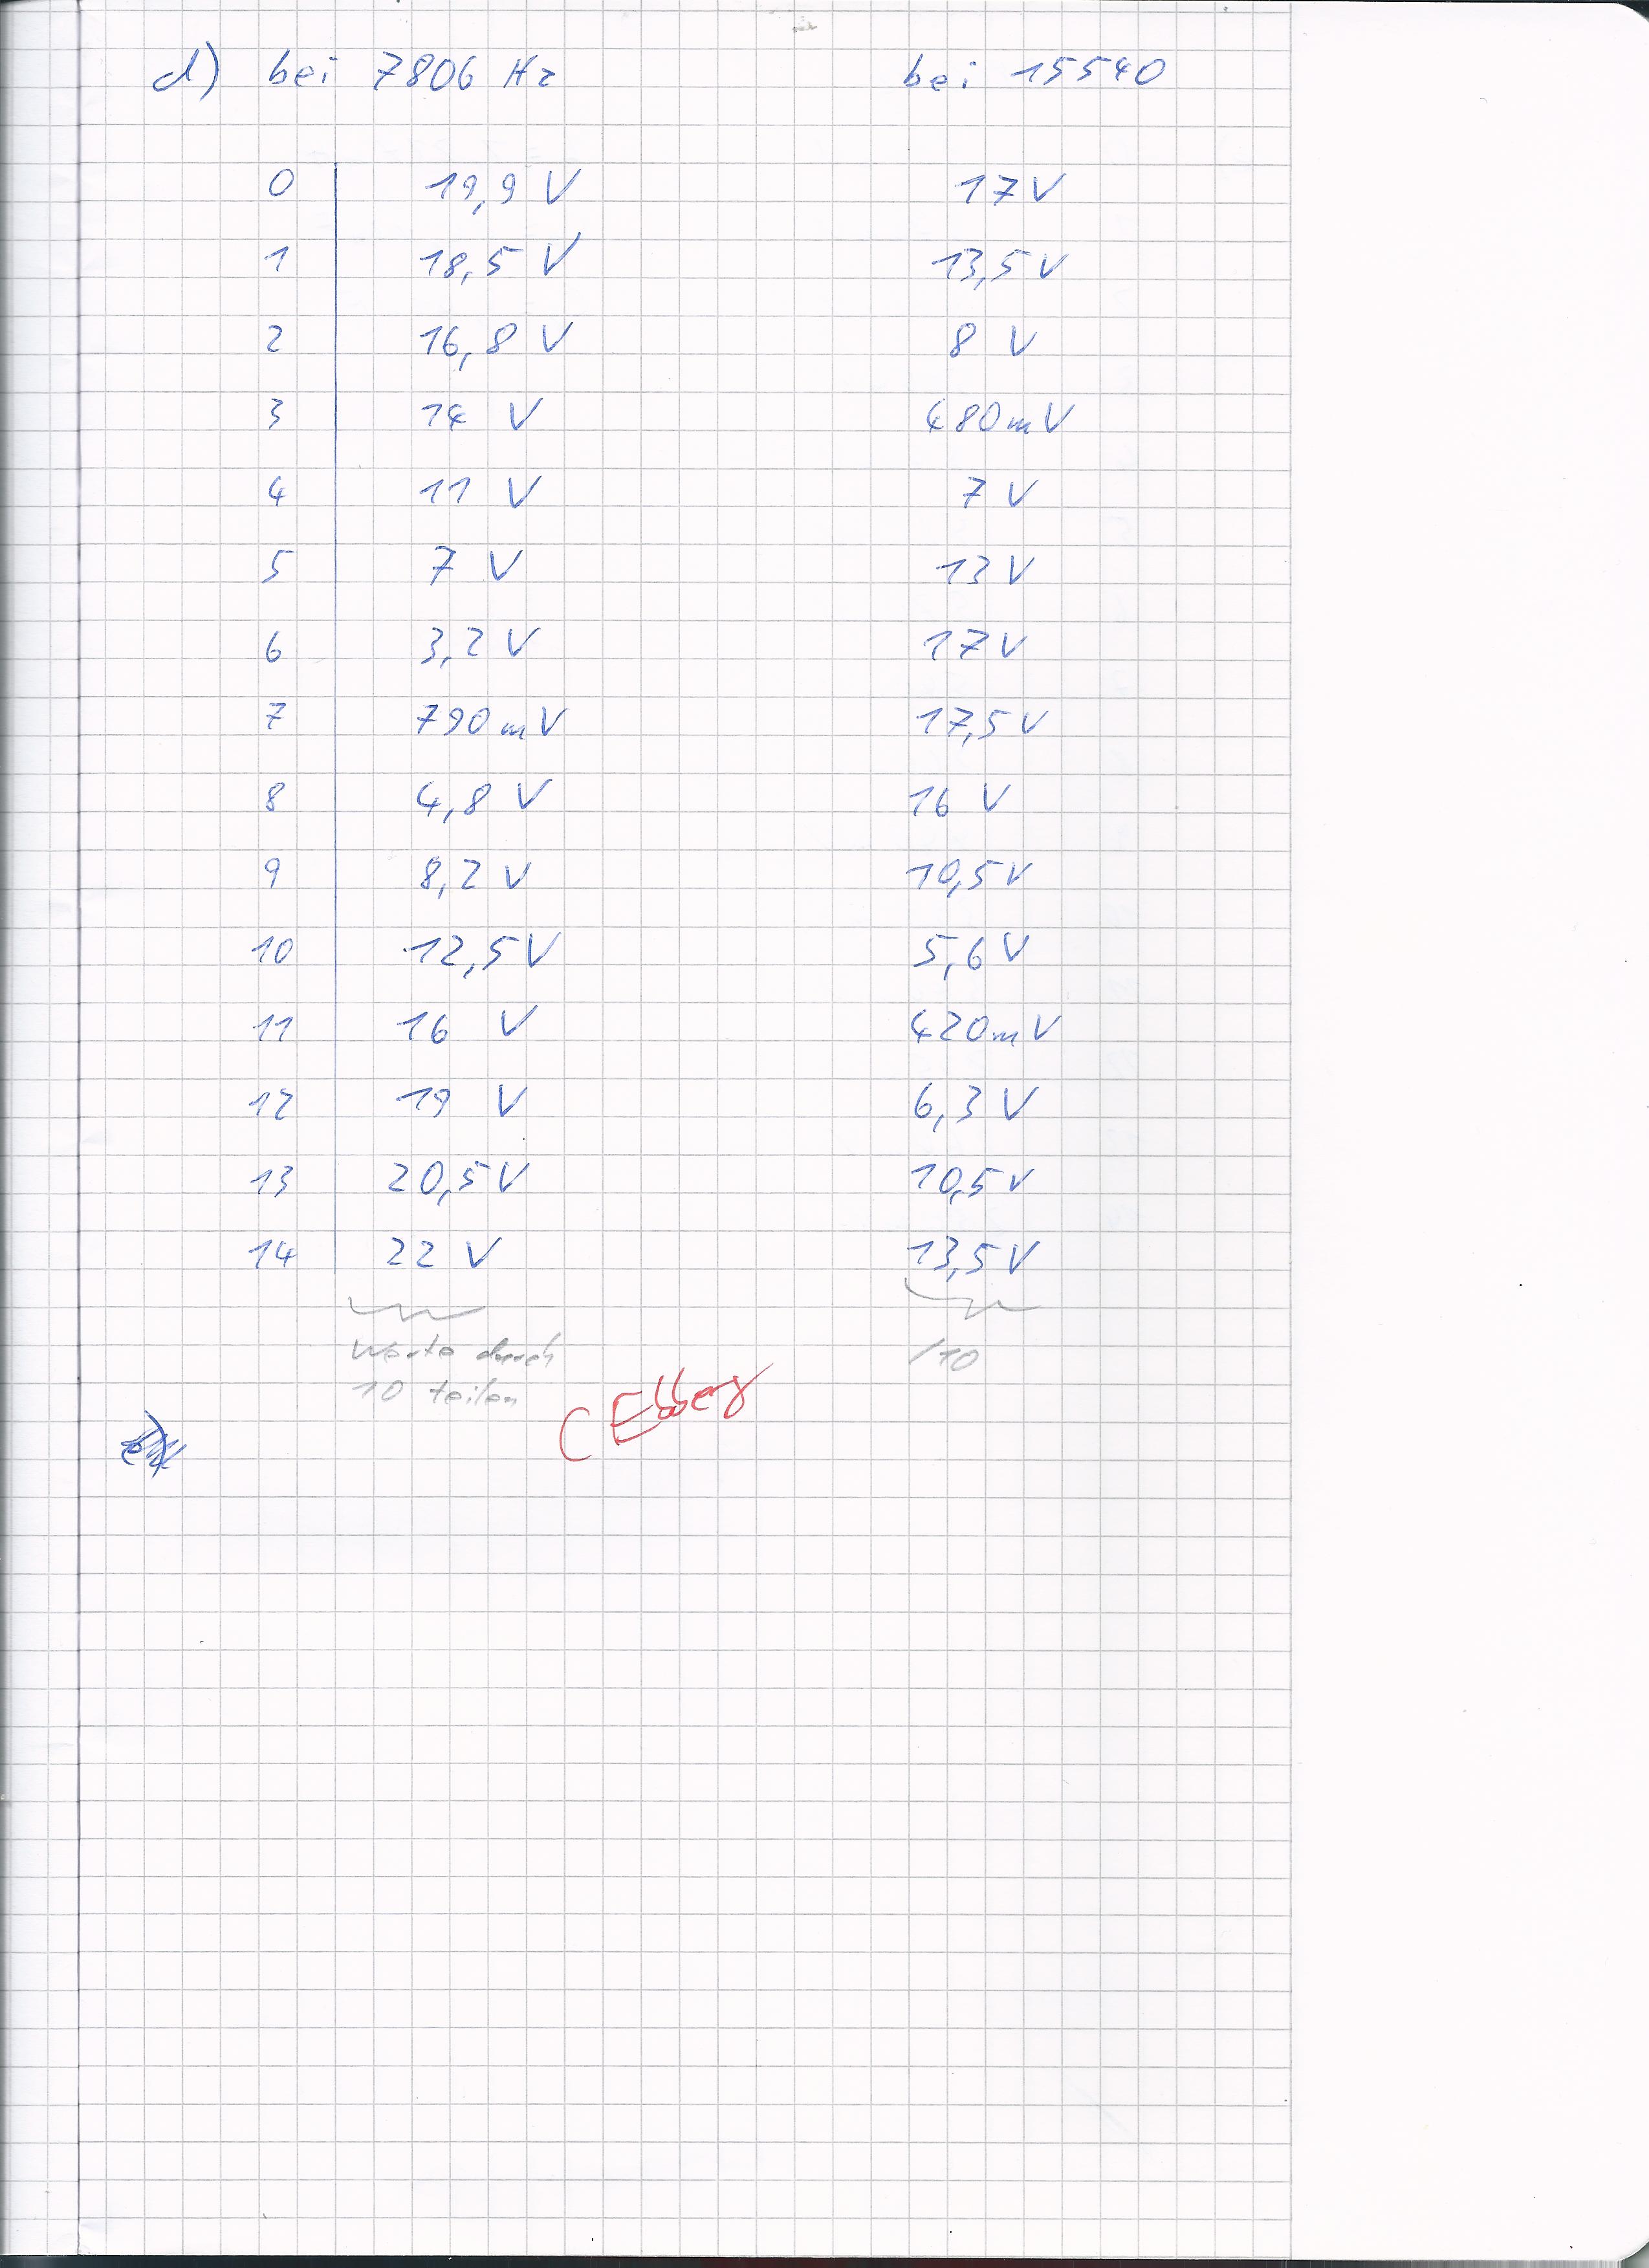 d) bei 7806 Hz bei 15540
0 19,9 V 17 V
1 18,5 V 13,5 V
2 16,8 V 8 V
3 14 V 480 mV
4 11 V 7 V
5 7 V 13 V
6 3,2 V 17 V
7 790 mV 17,5 V
8 4,8 V 16 V
9 8,2 V 10,5 V
10 12,5 V 5,6 V
11 16 V 420 mV
12 19 V 6,3 V
13 20,5 V 10,5 V
14 22 V 13,5 V
Werte durch /10
10 teilen